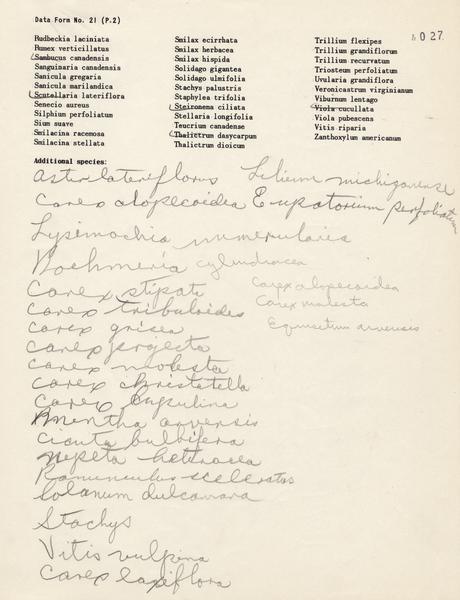 Data Form No. 21 (P.2)
027
Rudbeckia laciniata
Rumex verticillatus
Sambucus canadensis
Sanguinaria canadensis
Sanicula gregaria
Sanicula marilandica
Scutellaria lateriflora
Senecio aureus
Silphium perfoliatum
Sium suave
Smilacina racemosa
Smilacina stellata
Smilax ecirrhata
Smilax herbacea
Smilax hispida
Solidago gigantea
Solidago ulmifolia
Stachys palustris
Staphylea trifolia
Steironema ciliata
Stellaria longifolia
Teucrium canadense
Thalictrum dasycarpum
Thalictrum dioicum
Trillium flexipes
Trillium grandiflorum
Trillium recurvatum
Triosteum perfoliatum
Uvularia grandiflora
Veronicastrum virginianum
Viburnum lentago
Viola cucullata
Viola pubescens
Vitis riparia
Zanthoxylum americanum
Additional species:
Aster lateriflorus Lilium michiganense
Carex alopecoidea Eupatorium perfoliatum
Lysimachia nummularia
Boehmeria cylindracea
Carex stipata Carex alopecoidea
Carex tribuloides Carex molesta
Carex grisea Equisetum arvensis
Carex projecta
Carex molesta
Carex christatella
Carex lupulina
Mentha arvensis
Cicuta bulbifera
Nepeta heteracea
Ranunculus sceleratus
Solanum dulcamara
Stachys
Vitis vulpina
Carex laxiflora